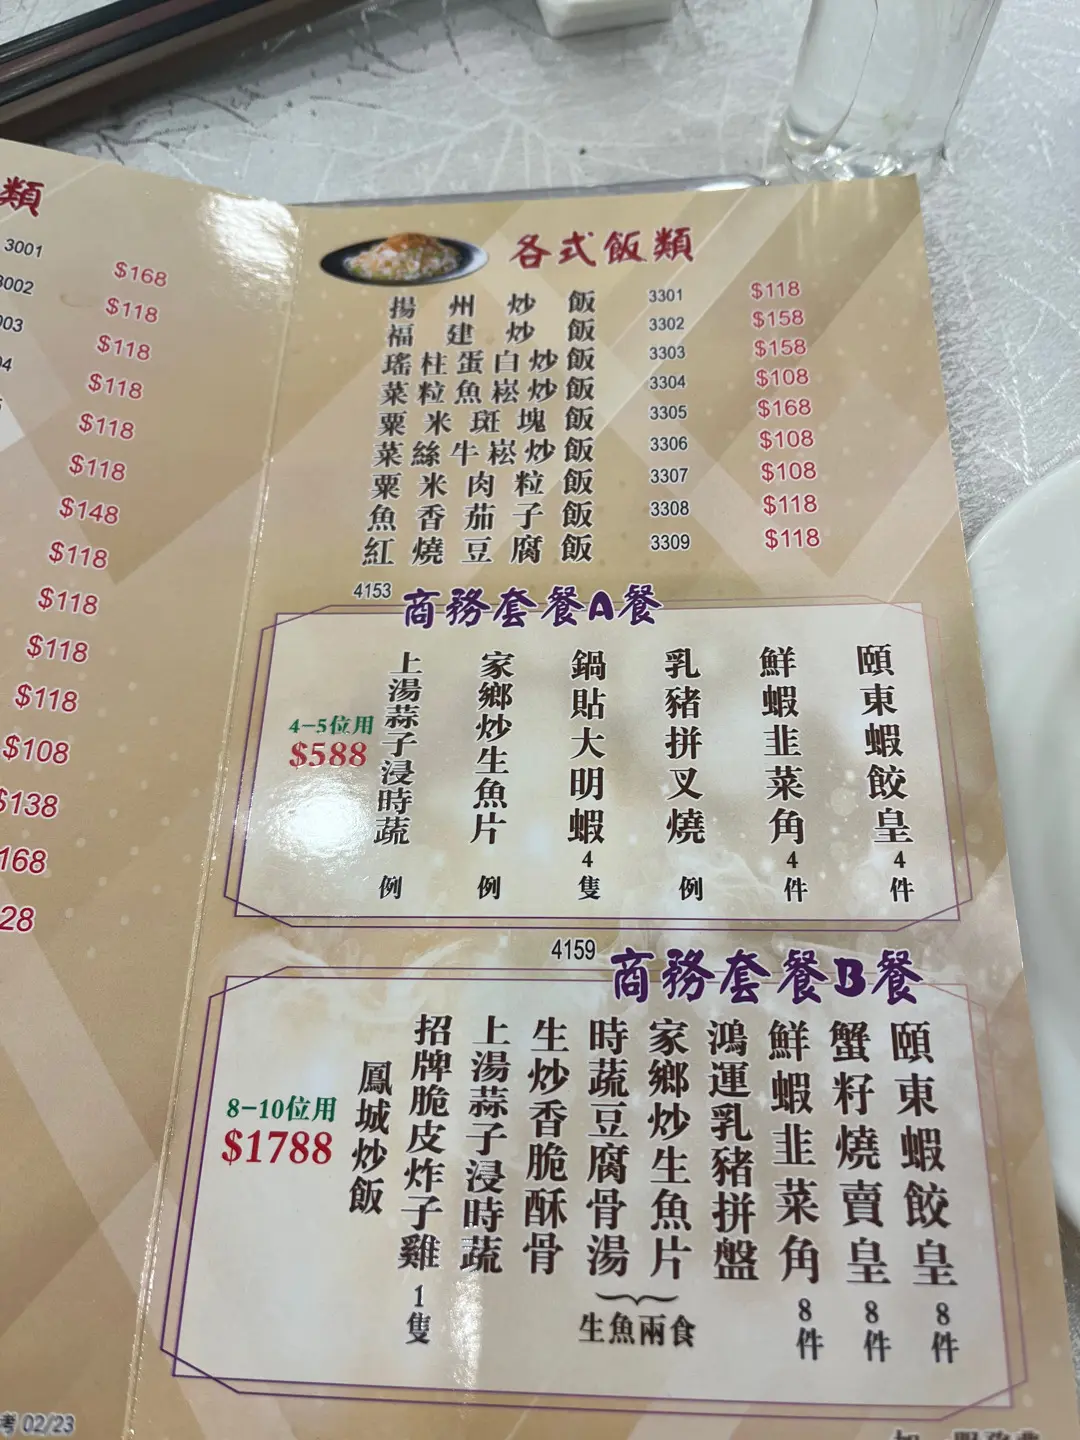 類
3001
$168
3002
$118
003
$118
$118
$118
$118
$148
$118
$118
$118
$118
$108
$138
168
28
考 02/23
各式飯類
揚州炒飯 3301 $118
福建炒飯 3302 $158
瑤柱蛋白炒飯 3303 $158
菜粒魚崧炒飯 3304 $108
粟米斑塊飯 3305 $168
菜絲牛崧炒飯 3306 $108
粟米肉粒飯 3307 $108
魚香茄子飯 3308 $118
紅燒豆腐飯 3309 $118
4153 商務套餐A餐
頤東蝦餃皇 4件
鮮蝦韭菜角 4件
乳豬拼叉燒 例
鍋貼大明蝦 4隻
家鄉炒生魚片 例
上湯蒜子浸時蔬 例
4-5位用
$588
4159 商務套餐B餐
頤東蝦餃皇 8件
蟹籽燒賣皇 8件
鮮蝦韭菜角 8件
鴻運乳豬拼盤
家鄉炒生魚片
時蔬豆腐骨湯
生魚兩食
生炒香脆酥骨
上湯蒜子浸時蔬
招牌脆皮炸子雞 1隻
鳳城炒飯
8-10位用
$1788